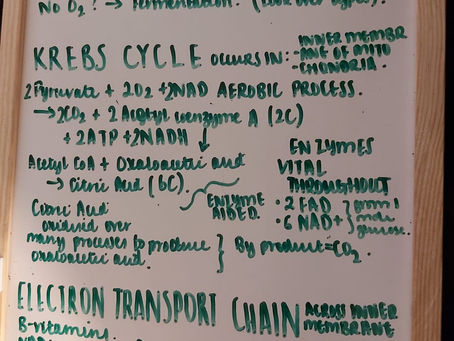 No O₂? → Fermentation. (Look over types).
KREBS CYCLE occurs in: INNER MEMBR
-ANE OF MITO
-CHONDRIA.
2Pyruvate + 2O₂ + 2NAD AEROBIC PROCESS.
→ 2CO₂ + 2 Acetyl coenzyme A (2C)
+ 2ATP + 2NADH
Acetyl CoA + Oxaloacetic acid
→ Citric Acid (6C).
ENZYME
AIDED.
ENZYMES
VITAL
THROUGHOUT
• 2 FAD
• 6 NAD+
from 1
glucose.
Citric Acid
oxidised over
many processes to produce
oxaloacetic acid.
By product = CO₂.
ELECTRON TRANSPORT CHAIN ACROSS INNER
MEMBRANE
B-vitamins.